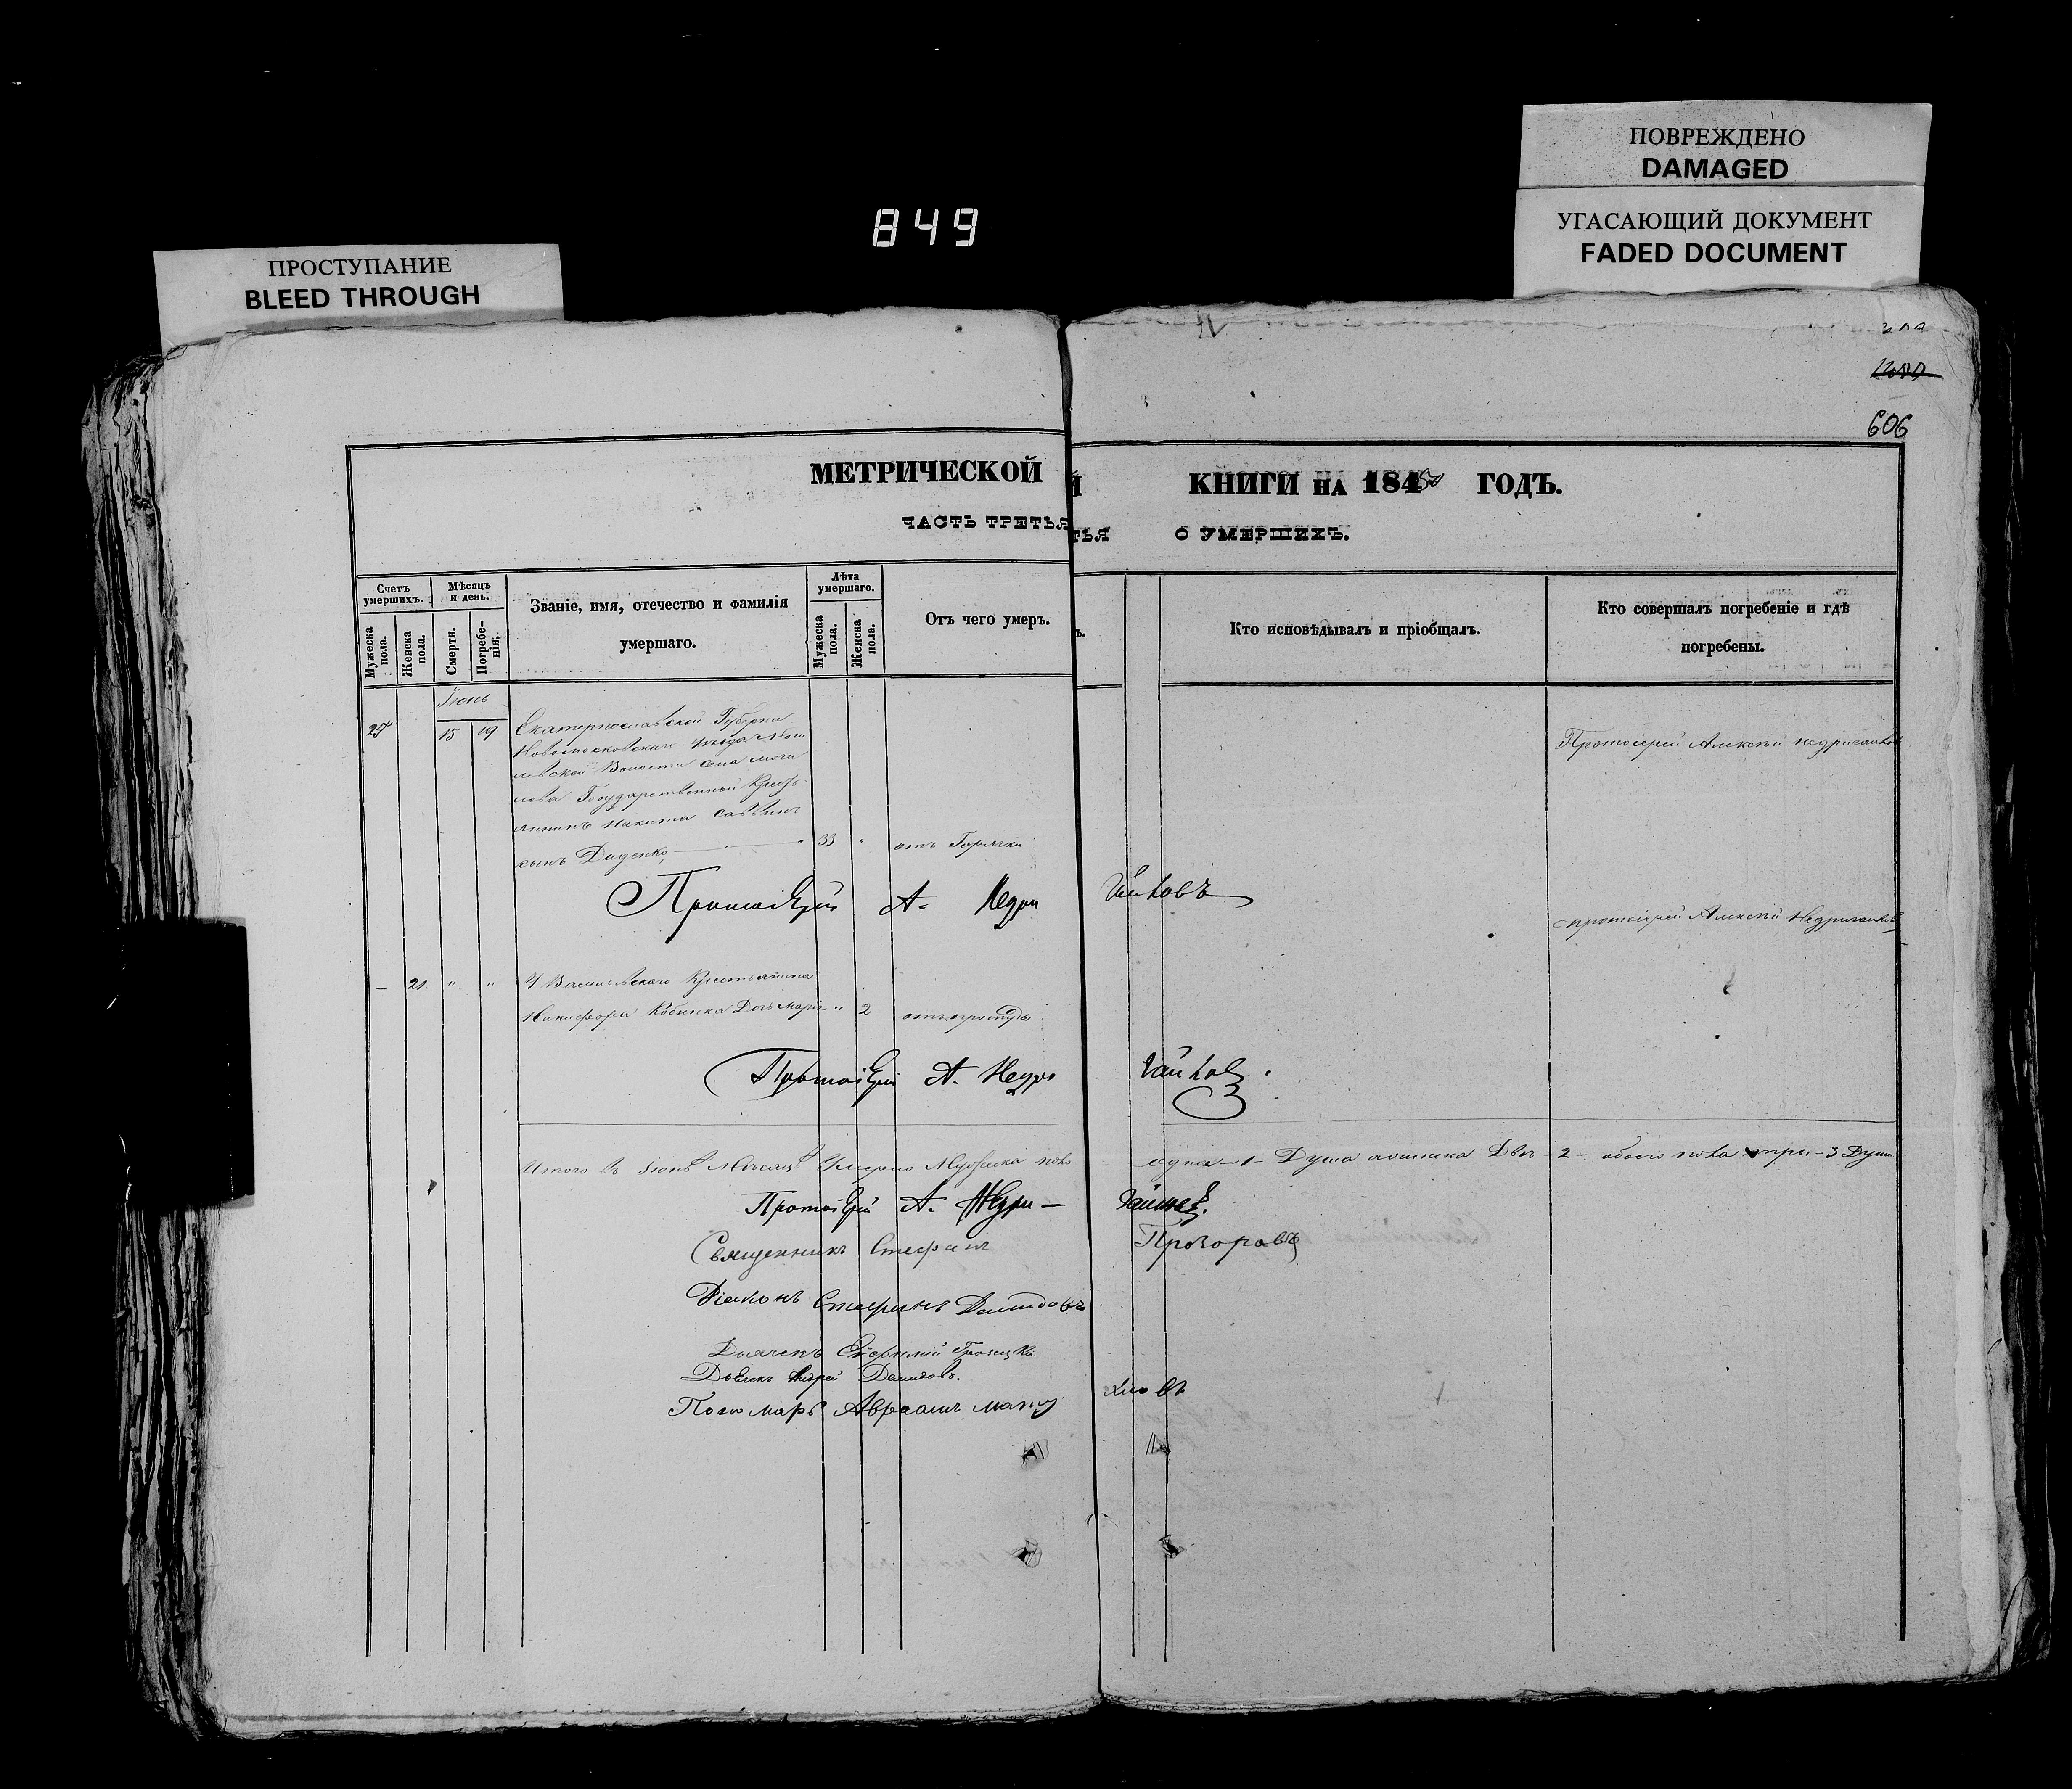 ПОВРЕЖДЕНО
DAMAGED
УГАСАЮЩИЙ ДОКУМЕНТ
FADED DOCUMENT
849
ПРОСТУПАНИЕ
BLEED THROUGH
606
МЕТРИЧЕСКОЙ КНИГИ НА 184 ГОДЪ.
ЧАСТЬ ТРЕТЬЯ О УМЕРШИХЪ.
Счетъ умершихъ.
Мужеска пола.
Женска пола.
Мѣсяцъ и день.
Смерти.
Погребенія.
Званіе, имя, отечество и фамилія
умершаго.
Лѣта умершаго.
Мужеска пола.
Женска пола.
Отъ чего умеръ.
Кто исповѣдывалъ и пріобщалъ.
Кто совершалъ погребеніе и гдѣ
погребены.
Іюнь
15 19 Екатеринославской Губерніи
Новомосковскаго уѣзда Моги
левской Волости села Моги
лева Государственный Кресть
янинъ Никита Саввинъ
сынъ Диденко 33 отъ Горячки
Протоіерей Алексѣй Недригайловъ
Протоіерей А. Недригайловъ
Протоіерей Алексѣй Недригайловъ
21. " " У Крестьянина
Никифора Дочь Марія " 2 отъ простуды
Протоіерей А. Недригайловъ
Итого въ Іюнѣ Мѣсяцѣ Умерло Мужеска пола одна - 1 - Душа женска Двѣ - 2 - обоего пола три - 3 Души
Протоіерей А. Недригайловъ.
Священникъ Стефанъ Прозоровъ
Діаконъ Стефанъ Демидовъ
Дьячекъ Евфимій
Дьячекъ Андрей Демидовъ.
Пономарь Авраамъ